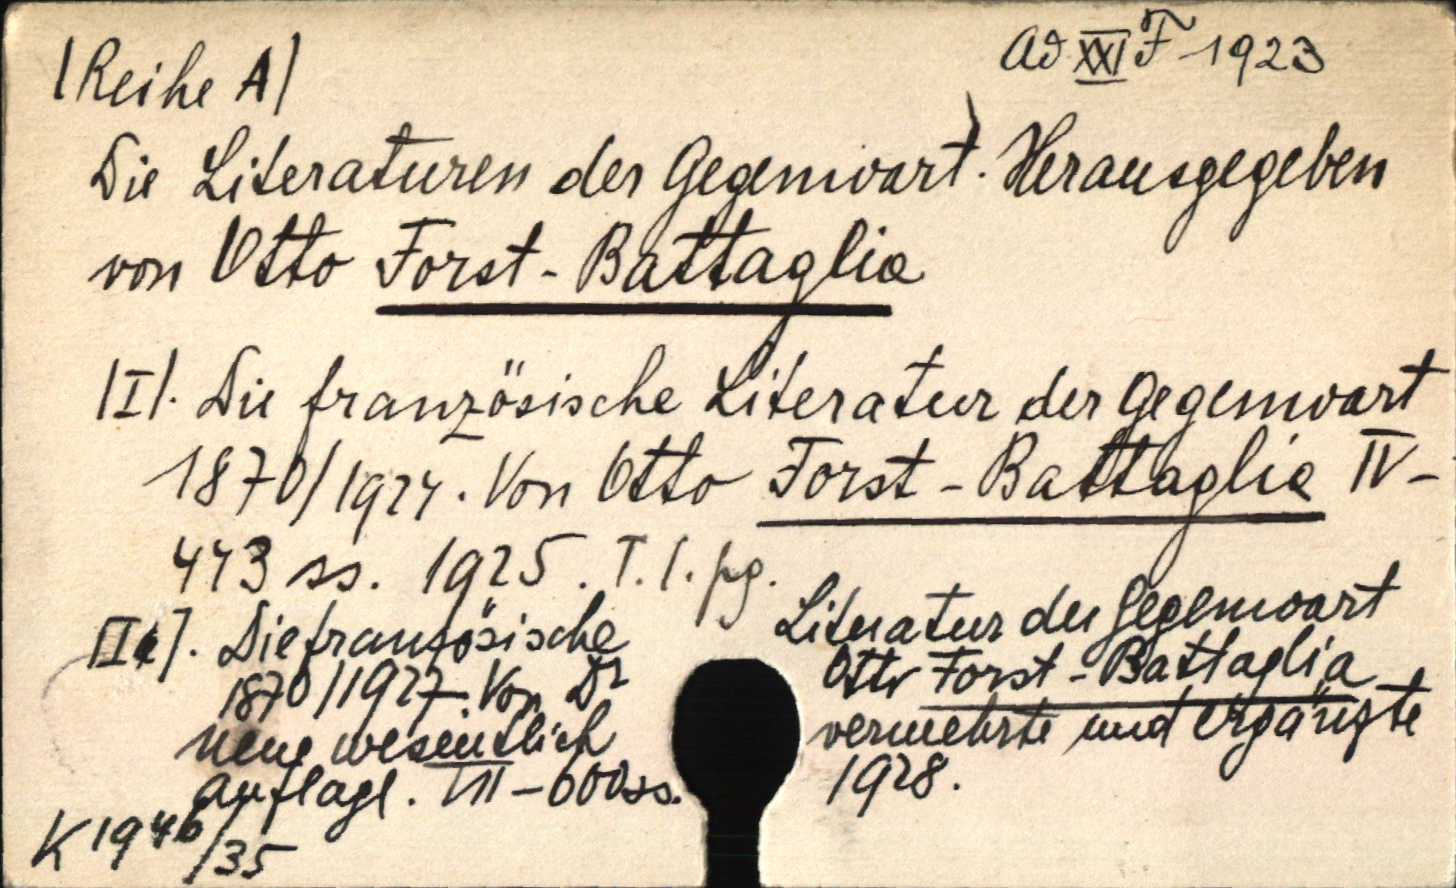 /Reihe A/
Ad XXI F 1923
Die Literaturen der Gegenwart. Herausgegeben
von Otto Forst-Battaglia
/I/. Die französische Literatur der Gegenwart
1870/1924. Von Otto Forst-Battaglia IV-
443 ss. 1925. T. 1. pg.
[I]. Die französische Literatur der Gegenwart
1870/1927. Von Dr Otto Forst-Battaglia
neue wesentlich vermehrte und ergänzte
Auflage. VII-600 ss. 1928.
K 1946/35